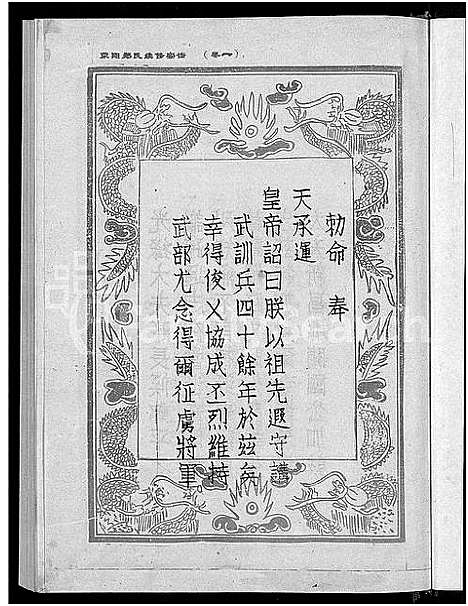 敕命　奉
天承運
皇帝詔曰朕以祖先遐守講
武訓兵四十餘年於茲矣
幸得俊乂協成丕烈維持
武部尤念得爾征虜將軍
（卷一）